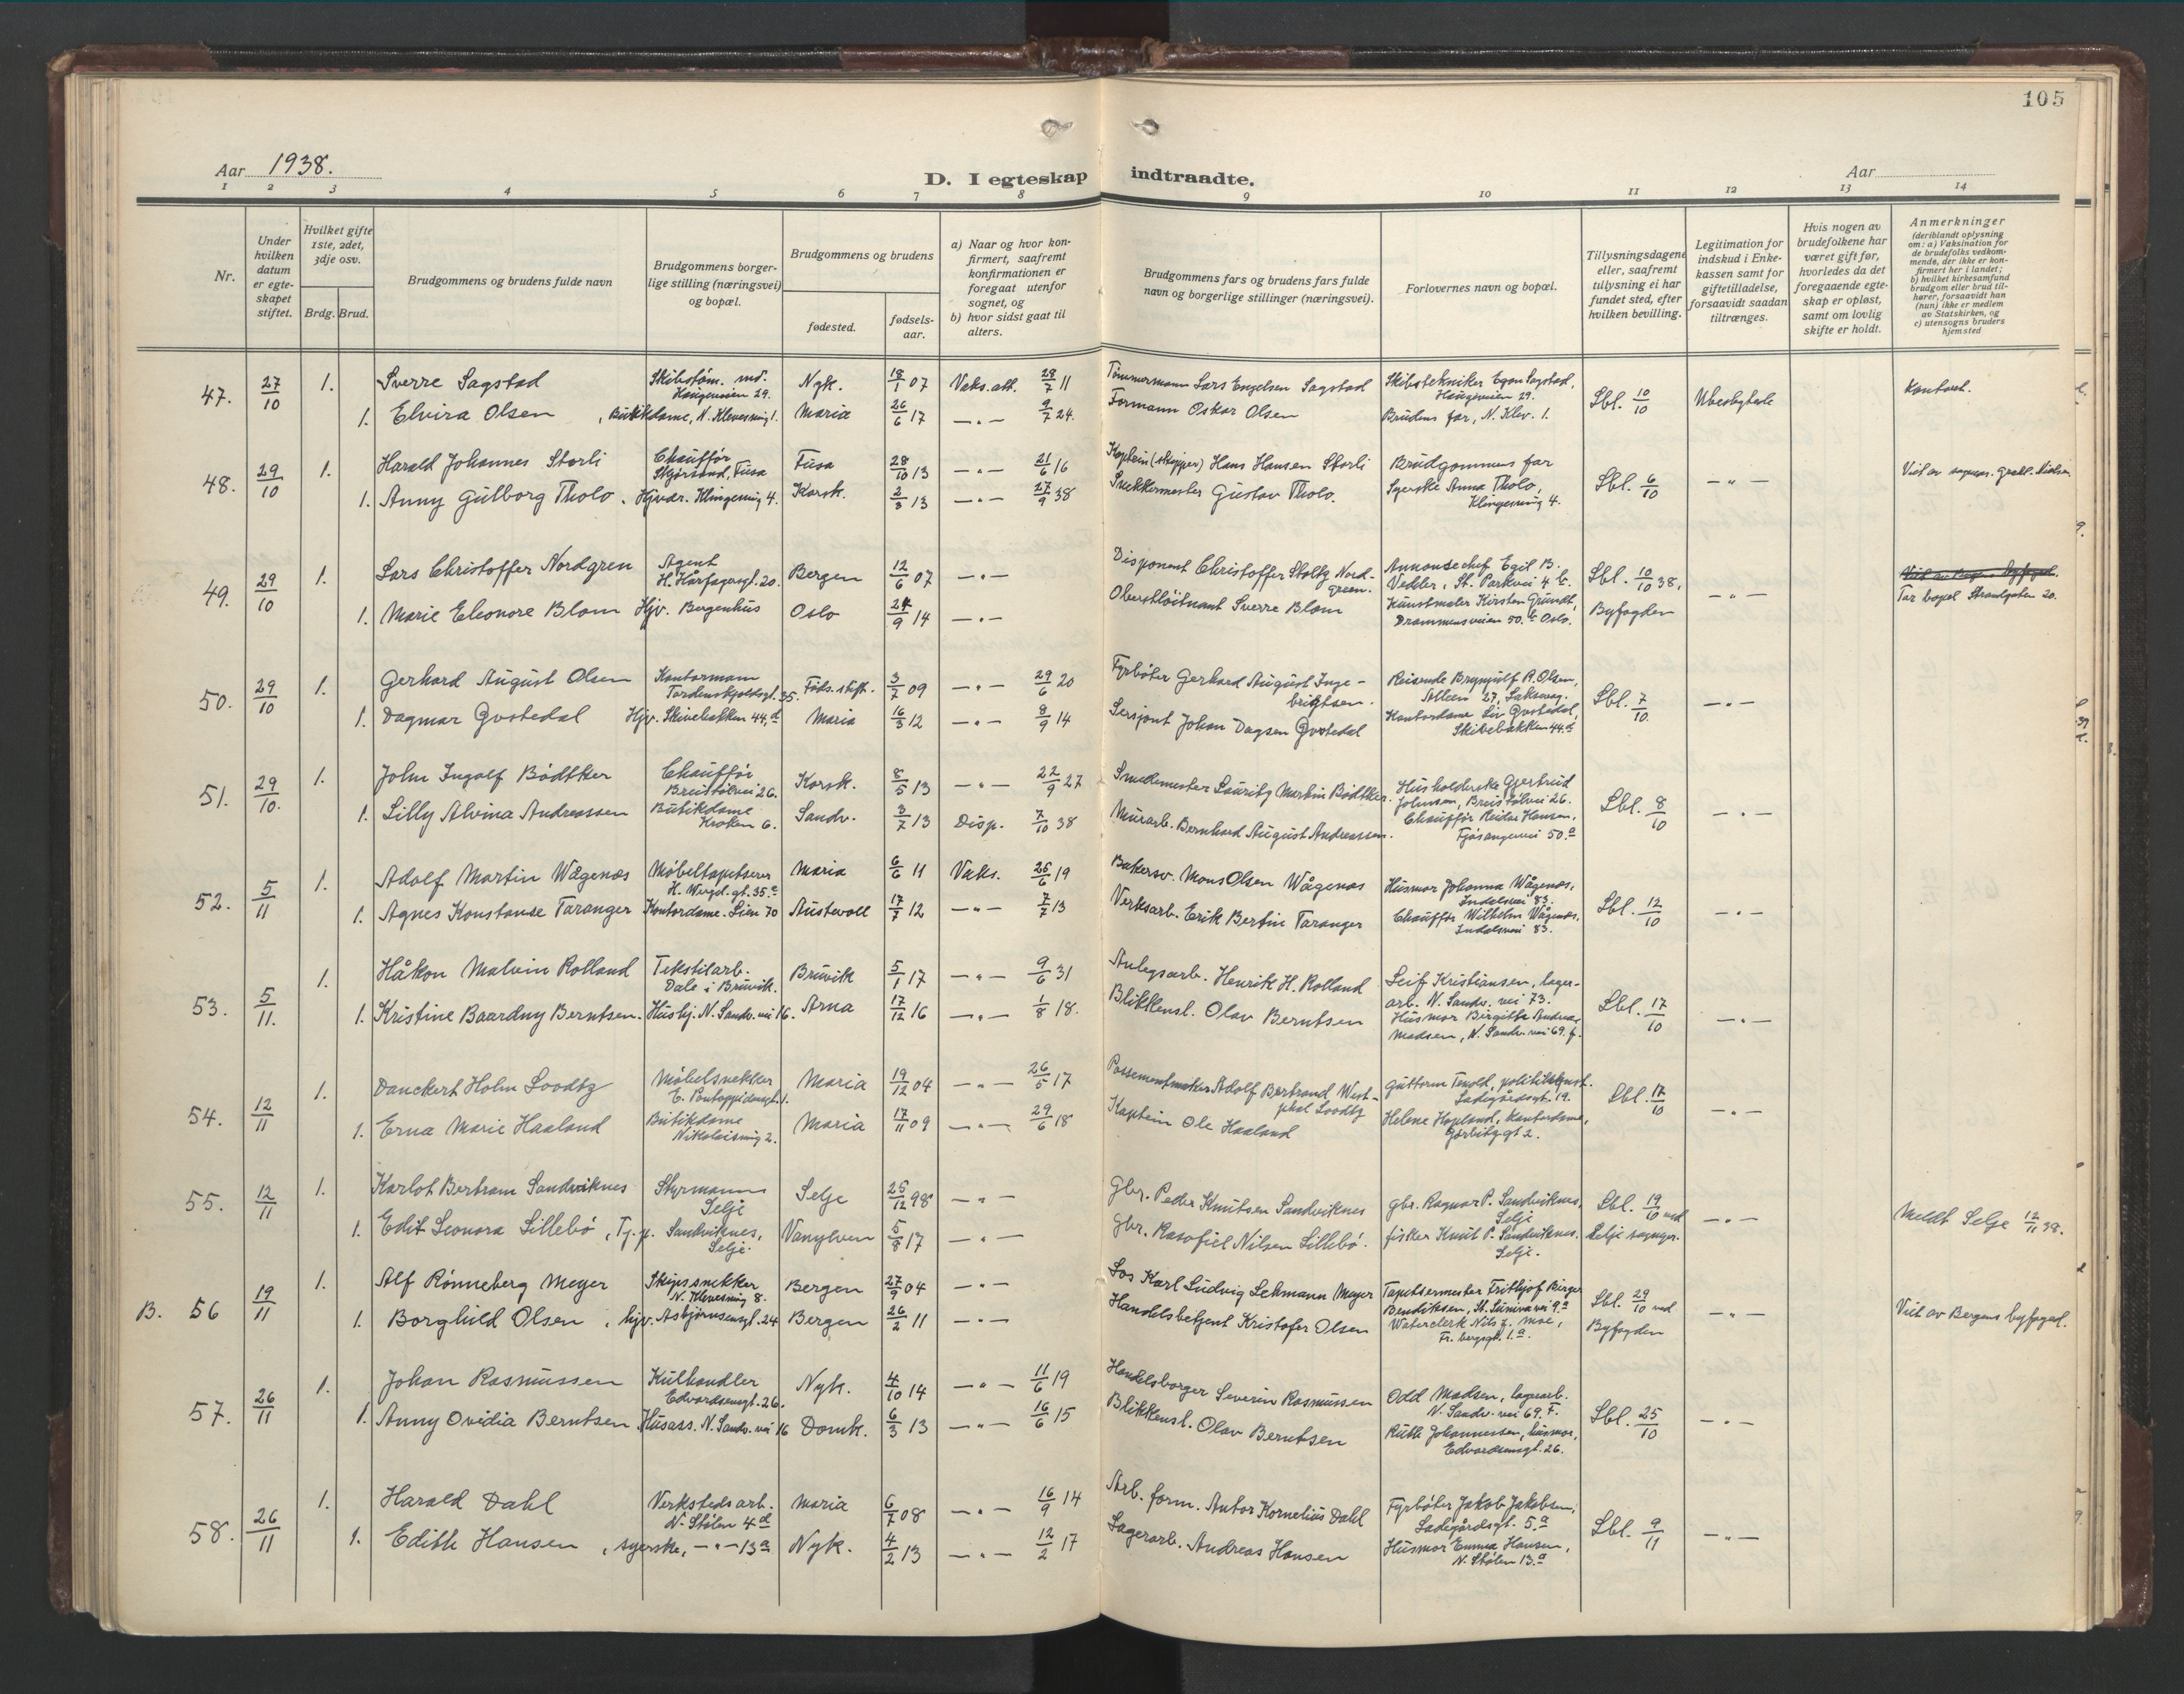 105
Aar 1938.
D. I egteskap indtraadte.
Aar
1 2 3 4 5 6 7 8 9 10 11 12 13 14
Nr.
Under hvilken datum er egteskapet stiftet.
Hvilket gifte 1ste, 2det, 3dje osv.
Brdg. Brud.
Brudgommens og brudens fulde navn
Brudgommens borgerlige stilling (næringsvei) og bopæl.
Brudgommens og brudens
fødested.
fødselsaar.
a) Naar og hvor konfirmert, saafremt konfirmationen er foregaat utenfor sognet, og
b) hvor sidst gaat til alters.
Brudgommens fars og brudens fars fulde navn og borgerlige stillinger (næringsvei).
Forlovernes navn og bopæl.
Tillysningsdagene eller, saafremt tillysning ei har fundet sted, efter hvilken bevilling.
Legitimation for indskud i Enkekassen samt for giftetilladelse, forsaavidt saadan tiltrænges.
Hvis nogen av brudefolkene har været gift før, hvorledes da det foregaaende egteskap er opløst, samt om lovlig skifte er holdt.
Anmerkninger
(deriblandt oplysning om: a) Vaksination for de brudefolks vedkommende, der ikke er konfirmert her i landet; b) hvilket kirkesamfund brudgom eller brud tilhører, forsaavidt han (hun) ikke er medlem av Statskirken, og c) utensogns bruders hjemsted
47. 27/10 1. Sverre Sagstad Skibstøm. md. Haugeveien 29. Nyk. 18/1 07 Vaks.att. 28/7 11 Tømmermann Lars Engelsen Sagstad Skibstekniker Egon Sagstad, Haugeveien 29. Lbl. 10/10 Ubeslegtede Kontant.
1. Elvira Olsen, Butikdame, N. Klevesmug 1. Maria 26/6 17 — " — 9/7 24. Formann Oskar Olsen Brudens far, N. Klev. 1.
48. 29/10 1. Harald Johannes Storli Chauffør Fusa 28/10 13 — " — 21/6 16 Kaptein (skipper) Hans Hansen Storli Brudgommens far Lbl. 6/10 — " —
1. Anny Gulborg Tholo. Hjvær. Klingesmug 4. Korsk. 2/3 13 — " — 27/9 38 Snekkermester Gustav Tholo. Syerske Anna Tholo, Klingesmug 4.
49. 29/10 1. Lars Christoffer Nordgren Agent H. Hårfagersgt. 20. Bergen 12/6 07 — " — Disponent Christoffer Stoltz Nordgreen. Annonsechef Egil B. Vedeler, St. Parkvei 4 b. Lbl. 10/10 38, — " — Tar bopel Strandgaten 20.
1. Marie Eleonore Blom Hjv. Bergenhus Oslo 24/9 14 — " — Oberstløitnant Sverre Blom Kunstmaler Kirsten Grundt, Drammensveien 50. b Oslo. Byfogden
50. 29/10 1. Gerhard August Olsen Kontormann Tordenskjoldsgt. 35. Føds.stift. 3/7 09 — " — 29/6 20 Fyrbøter Gerhard August Ingebrigtsen. Reisende Brynjulf R. Olsen, Alleen 27, Laksevag. Lbl. 7/10. — " —
1. Dagmar Gvstedal Hjv. Skivebakken 44,d Maria 16/3 12 — " — 8/9 14 Sersjant Johan Dagsen Gvstedal Kontordame Liv Gvstedal, Skivebakken 44.d
51. 29/10. 1. John Ingolf Bødtker Chauffør. Breistølvei 26. Korsk. 8/5 13 — " — 22/9 27 Smedemester Lauritz Martin Bødtker. Husholderske Gjertrud Johnsen, Breistølvei 26. Lbl. 8/10 — " —
1. Lilly Alvina Andreassen Butikdame Kroken 6. Sandv. 3/7 13 Disp. 7/10 38 Murarb. Bernhard August Andreassen. Chauffør Reidar Hansen, Fjøsangervei 50.a
52. 5/11 1. Adolf Martin Wågenes Møbeltapetserer H. Wergel. gt. 35.a Maria 6/6 11 Vaks. 26/6 19 Bakersv. Mons Olsen Wågenes Husmor Johanna Wågenes, Indalsvei 83. Lbl. 12/10 — " —
1. Agnes Konstanse Taranger Kontordame. Lien 70 Austevoll 17/7 12 — " — 7/7 13 Verksarb. Erik Bertin Taranger Chauffør Wilhelm Wågenes, Indalsvei 83.
53. 5/11. 1. Håkon Malvin Rolland Tekstilarb. Dale i Bruvik. Bruvik 5/1 17 — " — 9/6 31 Anlegsarb. Henrik H. Rolland Leif Kristiansen, lagerarb. N. Sandv. vei 73. Lbl. 17/10 — " —
1. Kristine Baardny Berntsen. Hushj. N. Sandv. vei 16. Arna 17/12 16 — " — 1/8 18. Blikkensl. Olav Berntsen Husmor Birgitte Andrea Madsen, N. Sandv. vei 69. f.
54. 12/11 1. Danckert Holm Loodtz Møbelsnekker E. Pontoppidansgt. 1. Maria 19/12 04 — " — 26/5 17 Possementmaker Adolf Bertrand Westphal Loodtz Guttorm Tenold, politikonst. Ladegårdsgt. 19. Lbl. 17/10 — " —
1. Erna Marie Haaland Butikdame Nikolaismug 2. Maria 17/11 09 — " — 29/6 18 Kaptein Ole Haaland Helene Hopland, kontordame,
55. 12/11 1. Karlot Bertram Sandviknes Styrmann Selje Selje 25/12 98 — " — Gbr. Peder Knutsen Sandviknes gbr. Ragnar P. Sandviknes, Selje Lbl. 19/10 ved — " — Meldt Selje 12/11 38.
1. Edit Leonora Lillebø, Tj.p. Sandviknes, Selje. Vanylven 5/8 17 — " — Gbr. Rasofiel Nilsen Lillebø. fisker Knut P. Sandviknes. Selje. Selje sogngpr.
B. 56 19/11 1. Alf Rønneberg Meyer Skipssnekker N. Klevesmug 8. Bergen 27/9 04 — " — Los Karl Ludvig Lehmann Meyer Tapetsermester Frithjof Birger Bendiksen, St. Sunnivavei 9.a Lbl. 29/10 ved — " — Viet av Bergens byfoged.
1. Borghild Olsen, hjv. Asbjørnsensgt. 24 Bergen 26/2 11 — " — Handelsbetjent Kristofer Olsen Waterclerk Nils Z. Moe, Fr. bergsgt. 1.a. Byfogden
57. 26/11 1. Johan Rasmussen Kulhandler Edvardsensgt. 26. Nyk. 4/10 14 — " — 11/6 19 Handelsborger Severin Rasmussen Odd Madsen, lagerarb. N. Sandv. vei 69. F. Lbl. 25/10 — " —
1. Anny Ovidia Berntsen Husass. N. Sandv. vei 16 Domk. 6/3 13 — " — 16/6 15 Blikkensl. Olav Berntsen Ruth Johannessen, husmor, Edvardsensgt. 26.
58. 26/11 1. Harald Dahl Verkstedsarb. N. Stølen 4 d Maria 6/7 08 — " — 16/9 14 Arb. form. Anton Kornelius Dahl Fyrbøter Jakob Jakobsen, Ladegårdsgt. 5.a Lbl. 9/11 — " —
1. Edith Hansen, syerske, — " — 13 a Nyk. 4/2 13 — " — 12/2 17 Lagerarb. Andreas Hansen Husmor Emma Hansen, N. Stølen 13.a